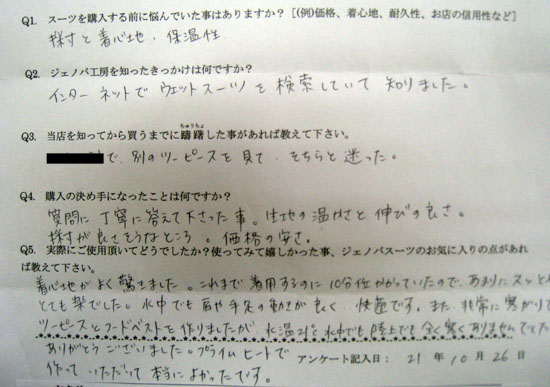 Q1. スーツを購入する前に悩んでいた事はありますか？［(例)価格、着心地、耐久性、お店の信用性など］
採寸と着心地、保温性
Q2. ジェノバ工房を知ったきっかけは何ですか？
インターネットでウェットスーツを検索していて知りました。
Q3. 当店を知ってから買うまでに躊躇した事があれば教えて下さい。
ちゅうちょ
で、別のツーピースを見て、そちらと迷った。
Q4. 購入の決め手になったことは何ですか？
質問に丁寧に答えて下さった事。生地の温かさと伸びの良さ。
採寸が良さそうなところ。価格の安さ。
Q5. 実際にご使用頂いてどうでしたか？使ってみて嬉しかった事、ジェノバスーツのお気に入りの点があれば
ば教えて下さい。
着心地がよく驚きました。これまで着用するのに10分位かかっていたので、あまりにスッと
とても楽でした。水中でも肩や手足の動きが良く、快適です。また、非常に寒がりで
ツーピースとフードベストを作りましたが、水温21℃水中でも陸上でも全く寒くありませんでした
ありがとうございました。プライムヒートで
アンケート記入日： 21年10月26日
作っていただいて本当によかったです。